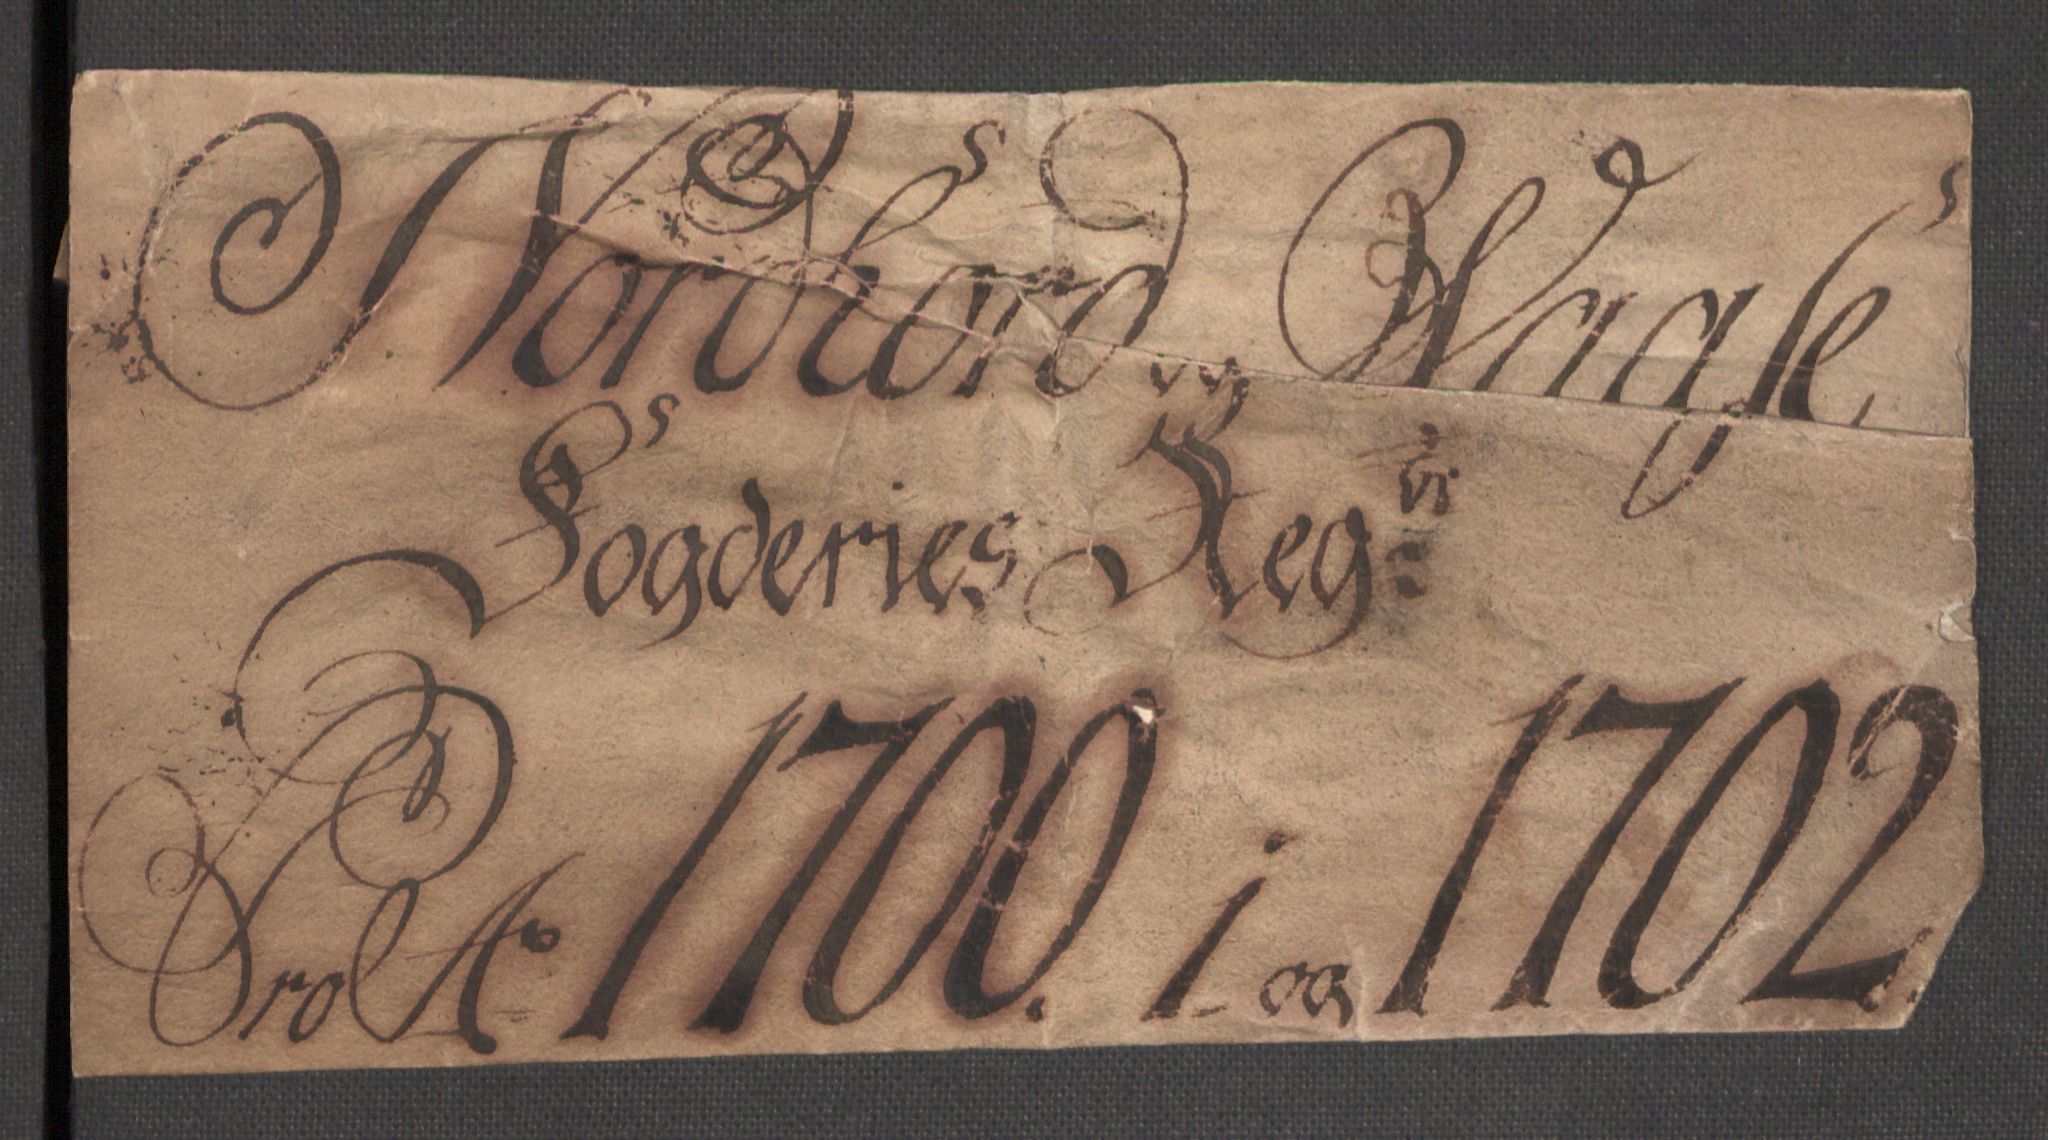 Nordhord og Wagse
Fogderies Reg
Pro Ao 1700. 1 og 1702